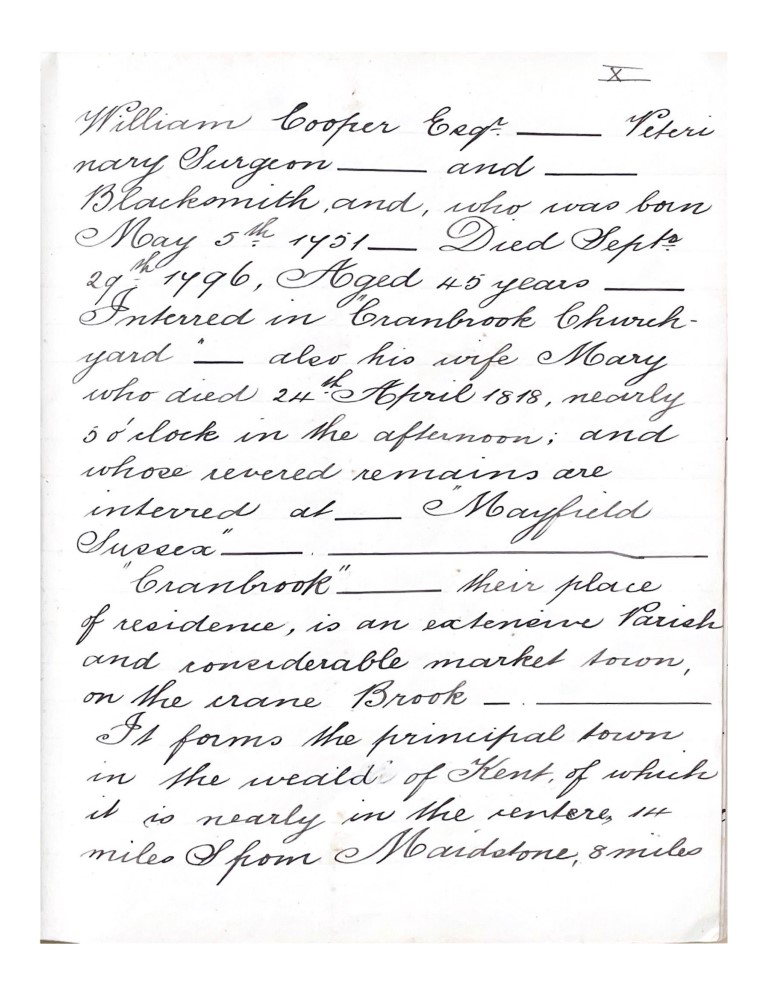 X
William Cooper Esqr. —— Veteri
nary Surgeon —— and ——
Blacksmith, and, who was born
May 5th 1751 — Died Septr
29th 1796, Aged 45 years ——
Interred in "Cranbrook Church-
yard" — also his wife Mary
who died 24th April 1818, nearly
5 o'clock in the afternoon; and
whose revered remains are
interred at —— "Mayfield
Sussex" ——. ——————
"Cranbrook" —— their place
of residence, is an extensive Parish
and considerable market town,
on the crane Brook —. ————
It forms the principal town
in the weald of Kent, of which
it is nearly in the centere, 14
miles S from Maidstone, 8 miles